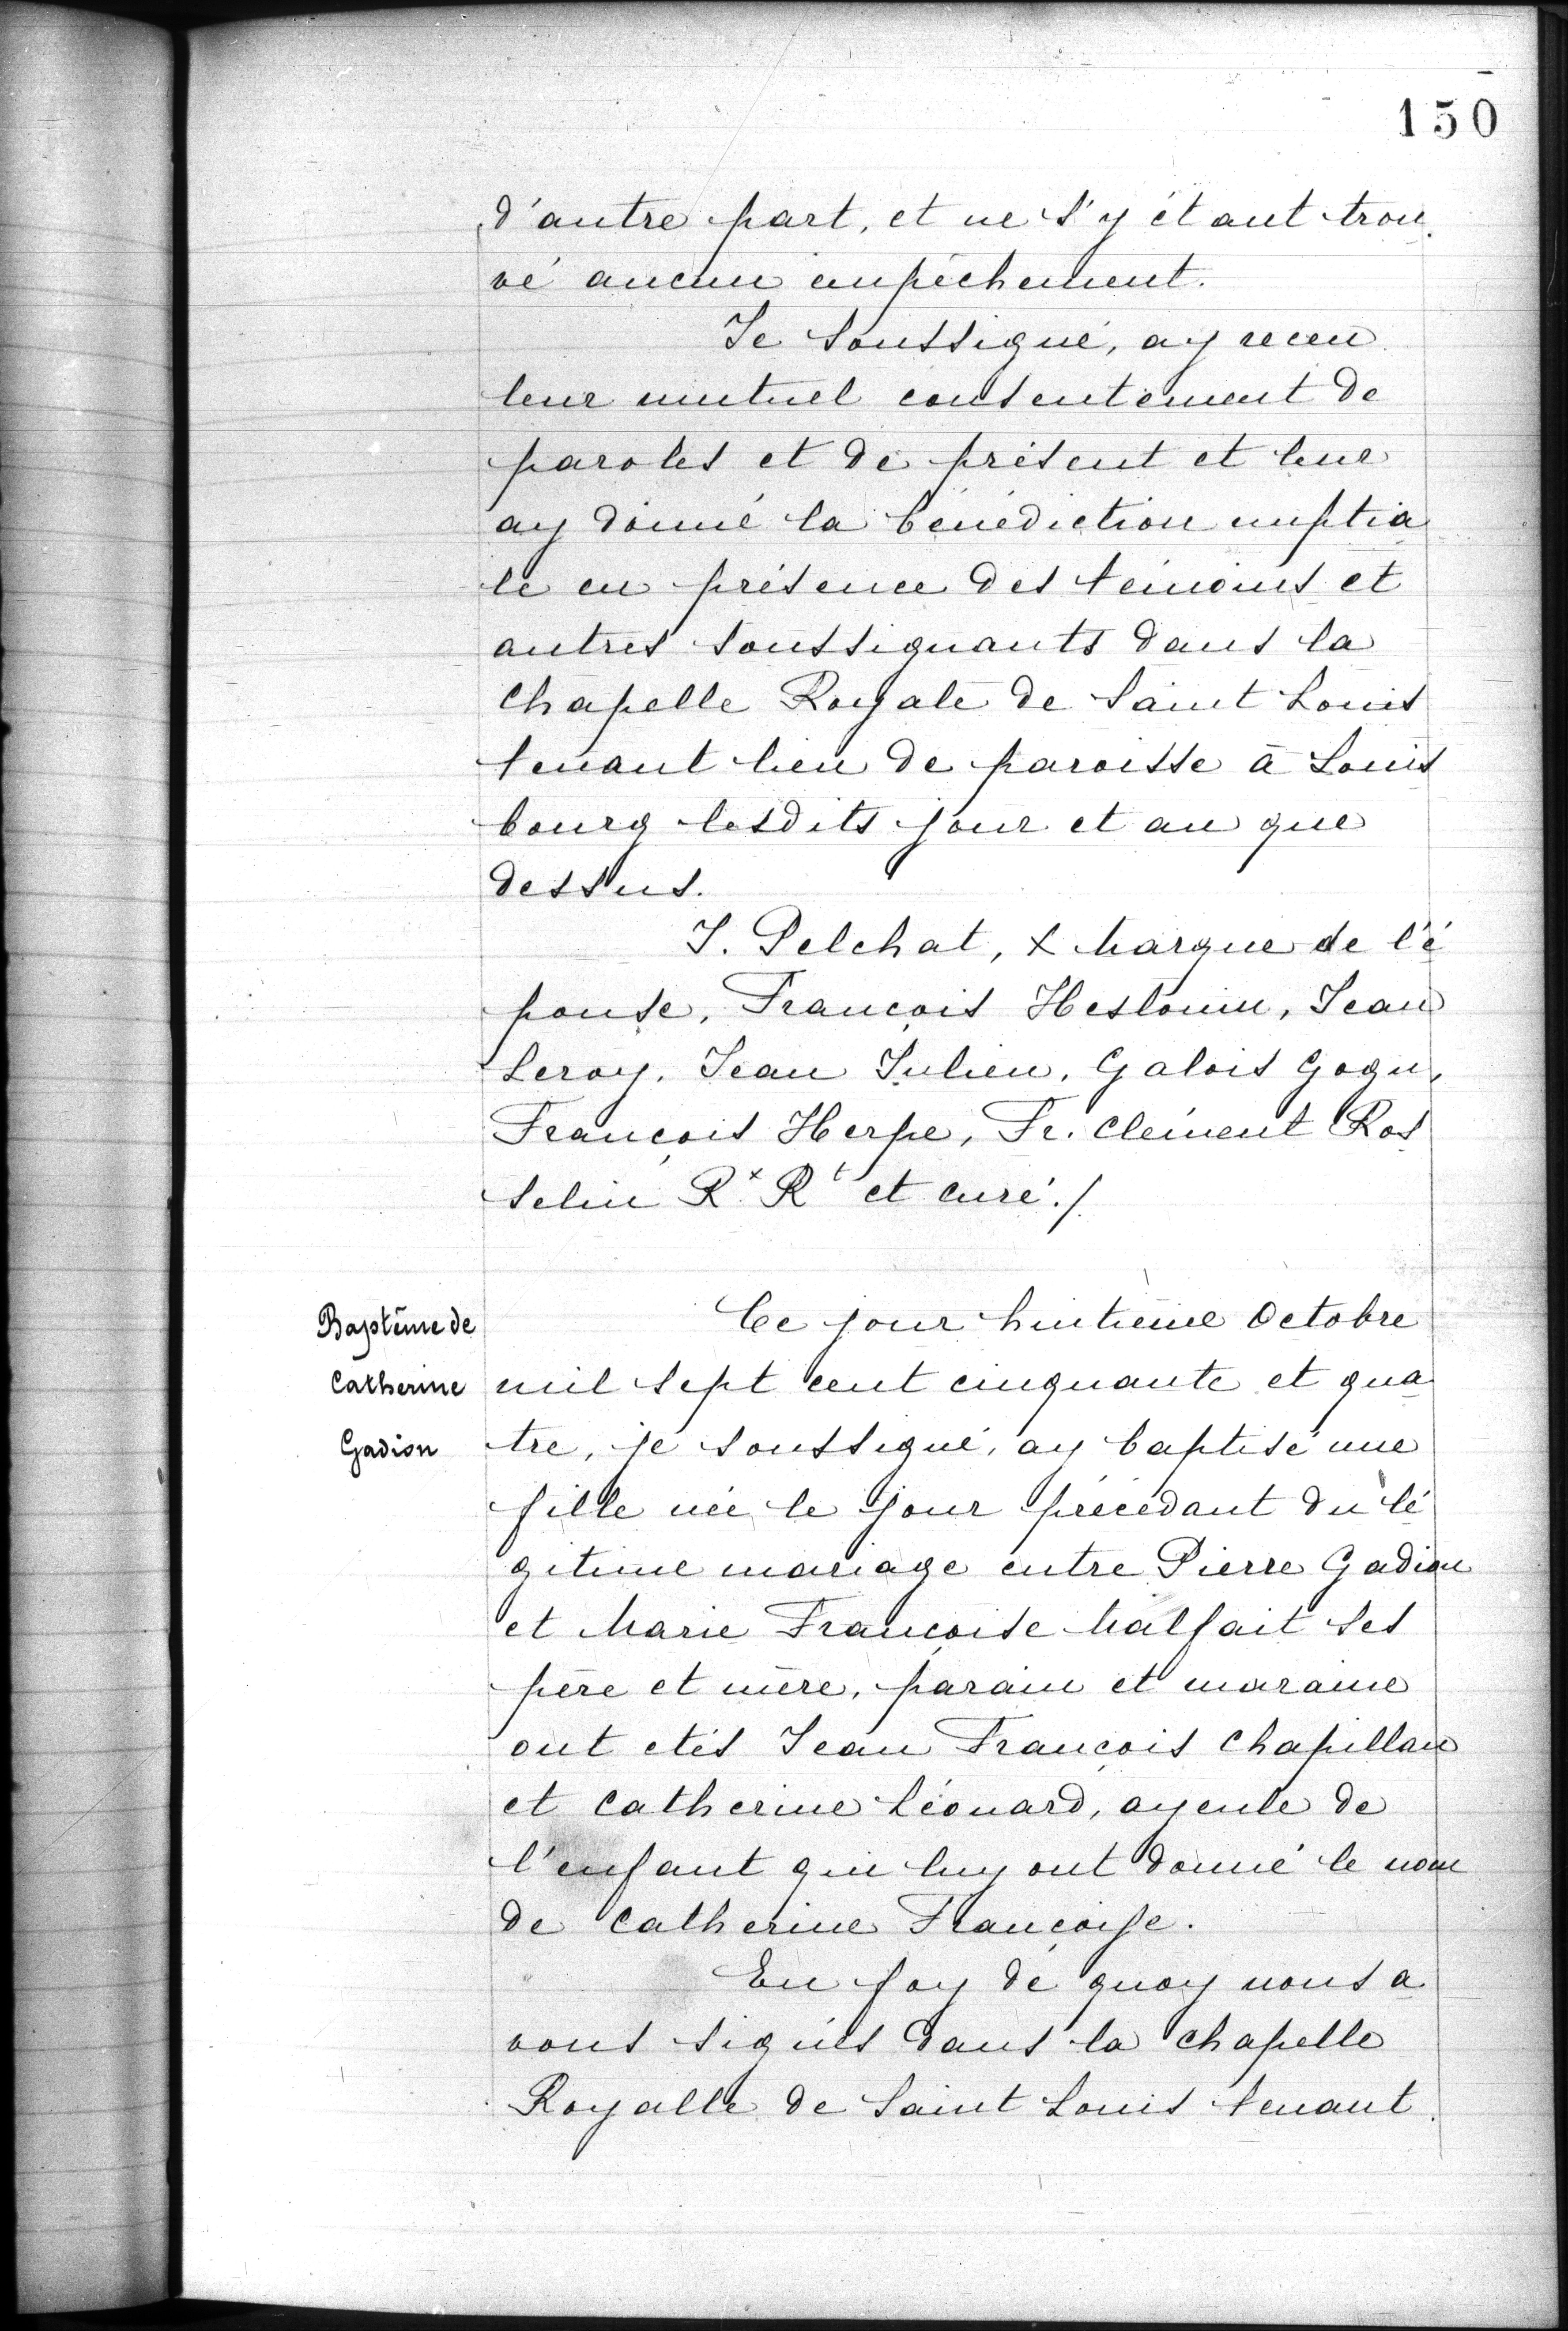 150
d'autre part, et ne s'y étant trou
vé aucun empêchement.
Je soussigné, ay receu
leur mutuel consentement de
paroles et de présent et leur
ay donné la bénédiction nuptia
le en présence des témoins et
autres soussignants dans la
chapelle Royale de Saint Louis
tenant lieu de paroisse à Louis
bourg lesdits jour et an que
dessus.
J. Pelchat, x Marque de l'é
pouse, François Heslouin, Jean
Leroy, Jean Julien, Galois Gogu,
François Herpe, Fr. Clément Ros
selin Rx Rt et curé./.
Baptême de
Catherine
Gadion
Ce jour huitième Octobre
mil sept cent cinquante et qua
tre, je soussigné, ay baptisé une
fille née le jour précédant du lé
gitime mariage entre Pierre Gadion
et Marie Françoise Malfait ses
père et mère, parain et maraine
ont etés Jean François Chapillau
et Catherine Léonard, ayeule de
l'enfant qui luy ont donné le nom
de Catherine Françoise.
En foy de quoy nous a
vons signés dans la chapelle
Royalle de Saint Louis tenant